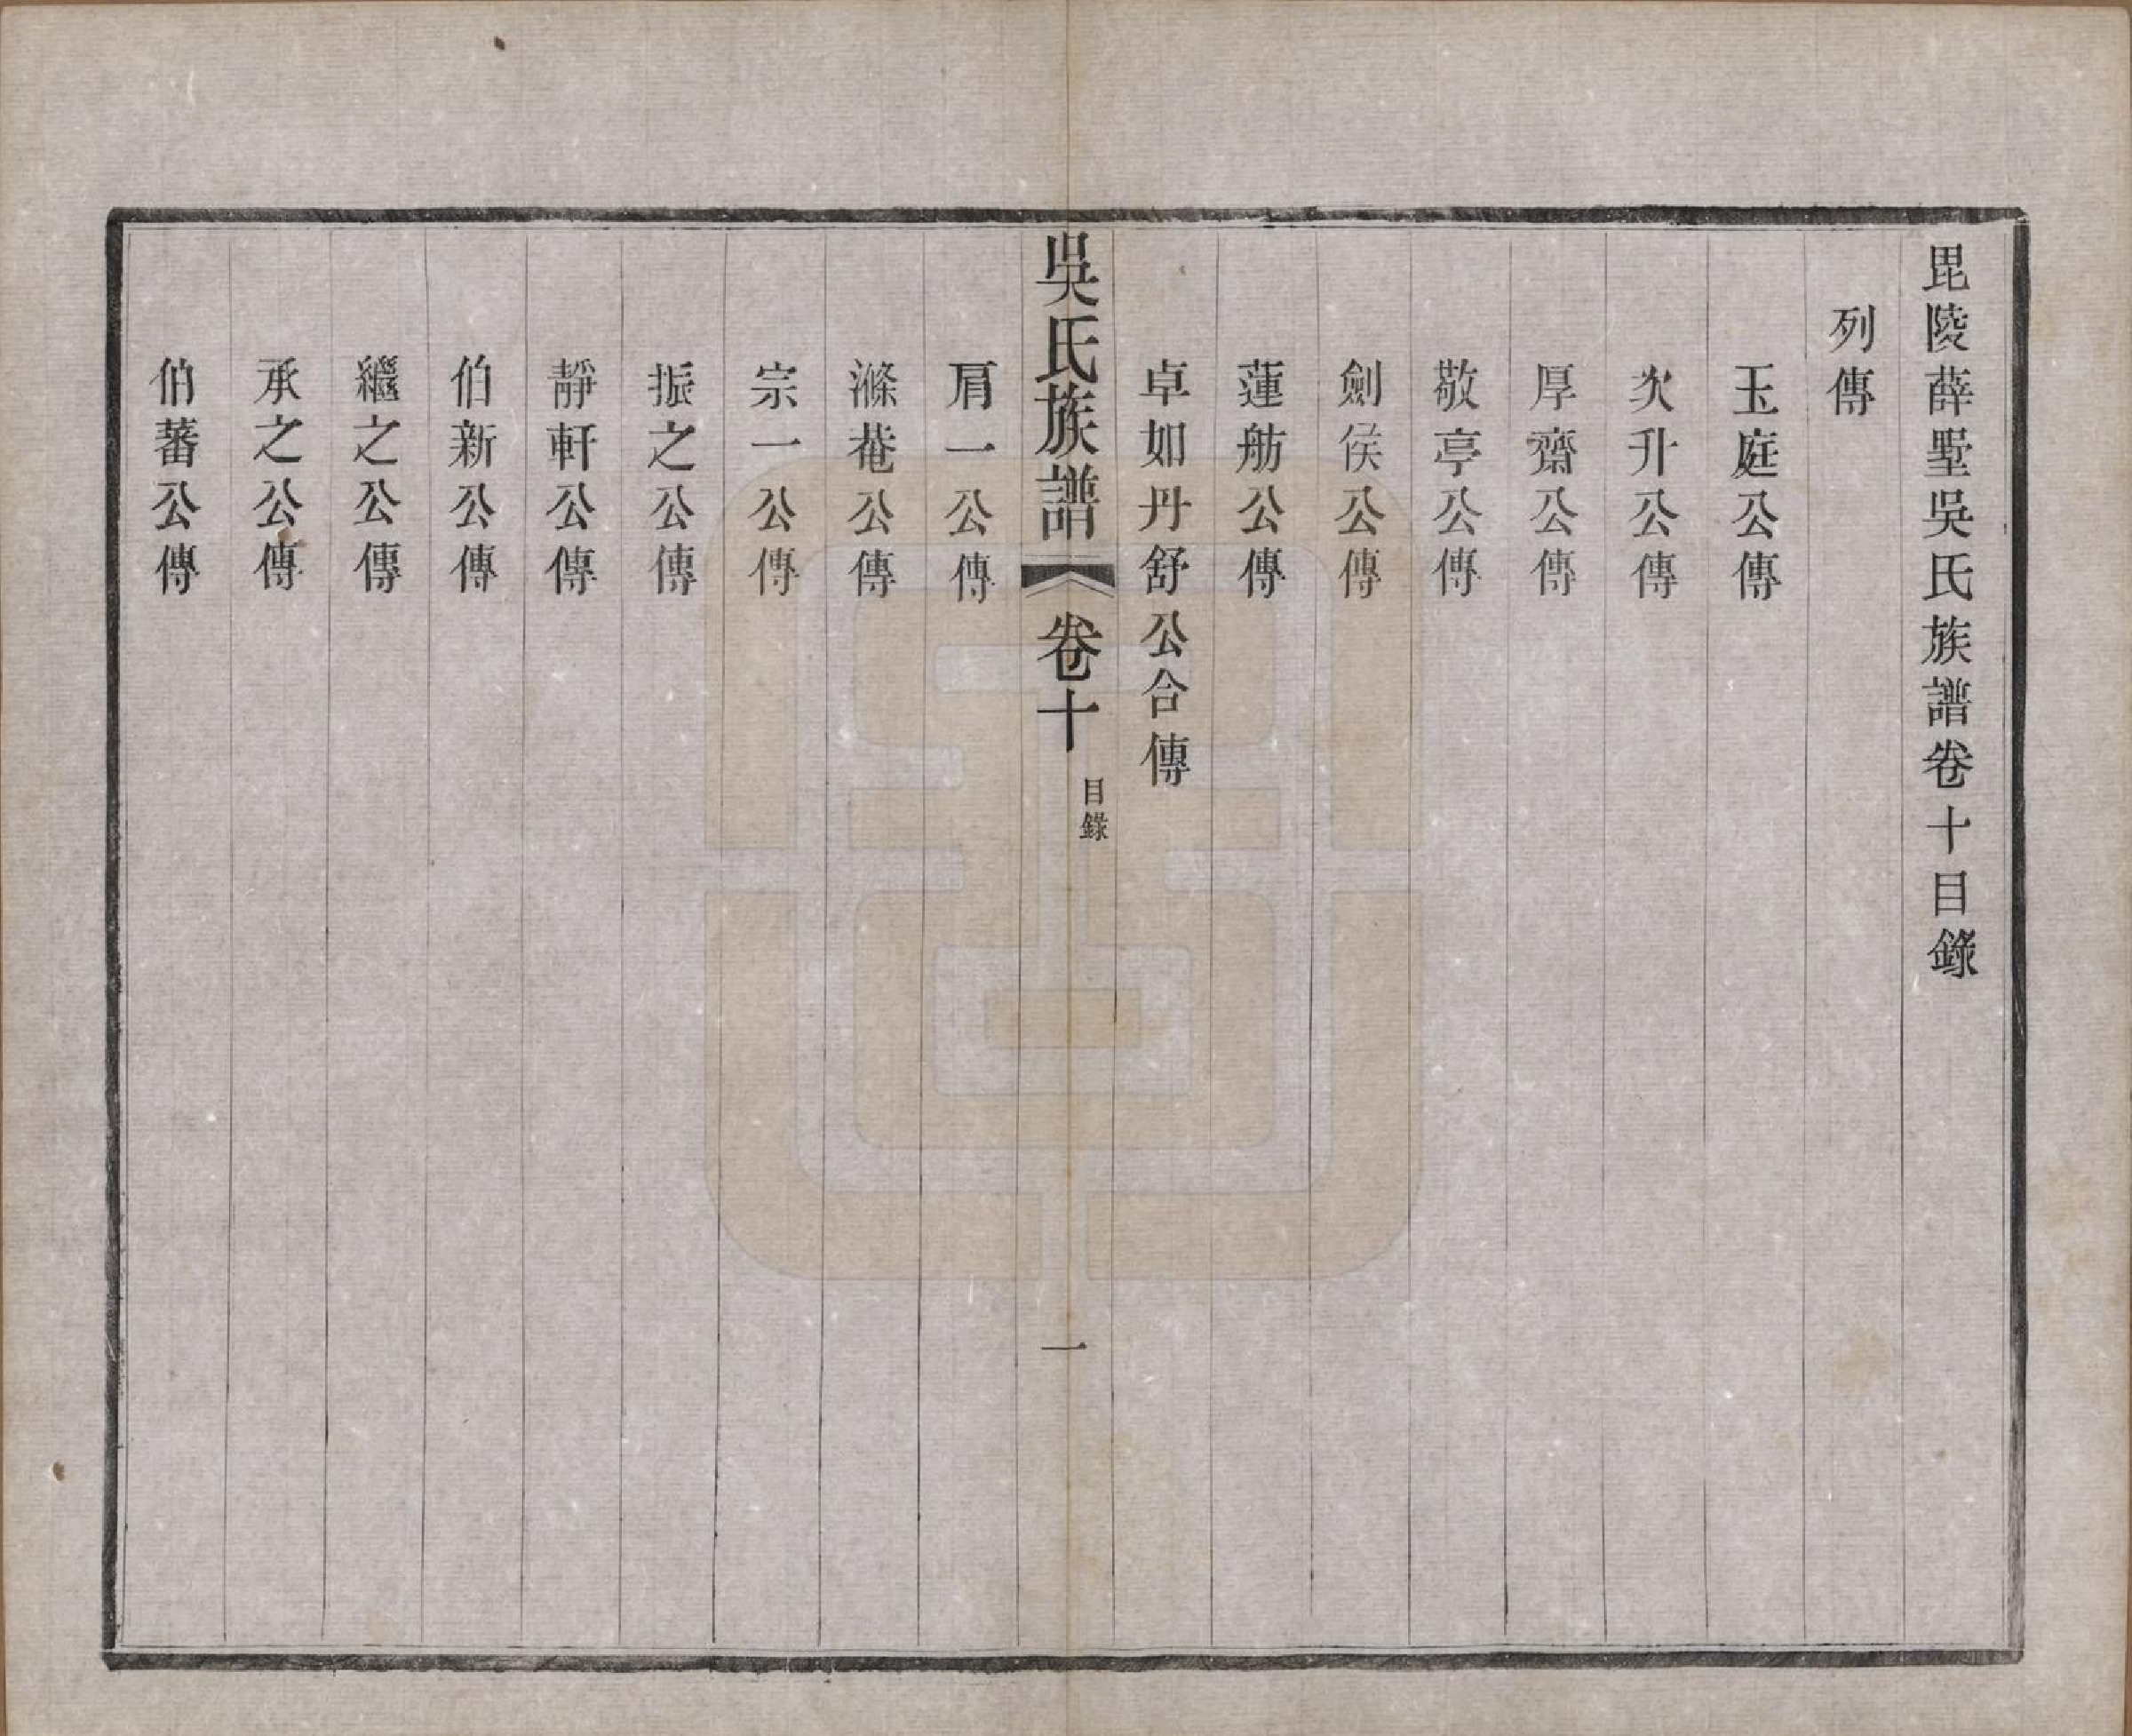 毘陵薛墅吳氏族譜卷十目錄
列傳
玉庭公傳
次升公傳
厚齋公傳
敬亭公傳
劍侯公傳
蓮舫公傳
卓如丹舒公合傳
吳氏族譜
卷十
目錄
一
肩一公傳
滌菴公傳
宗一公傳
振之公傳
靜軒公傳
伯新公傳
繼之公傳
承之公傳
伯蕃公傳